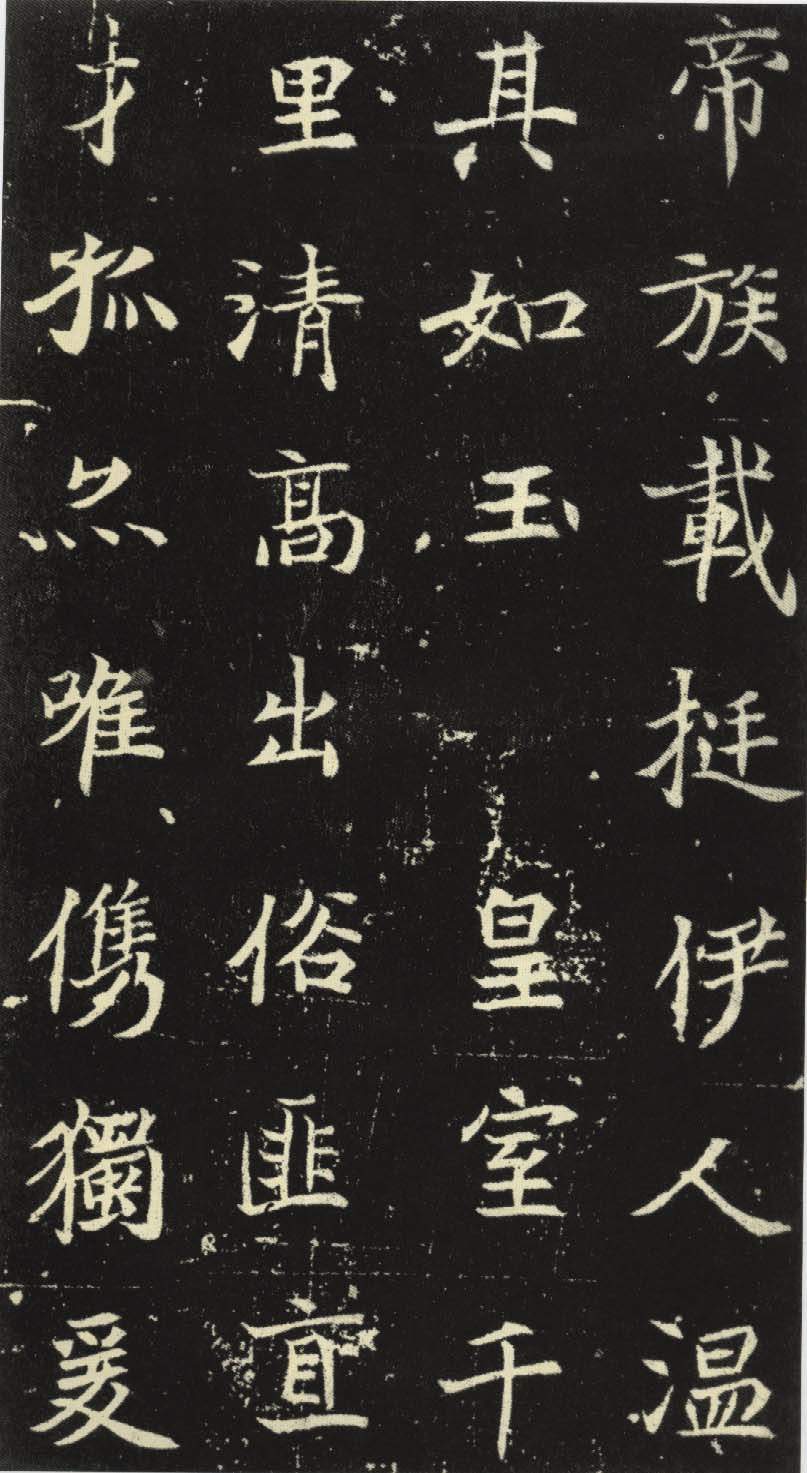 帝族載挺伊人温
其如玉皇室千
里清高出俗匪直
才孤然唯儁獨爰